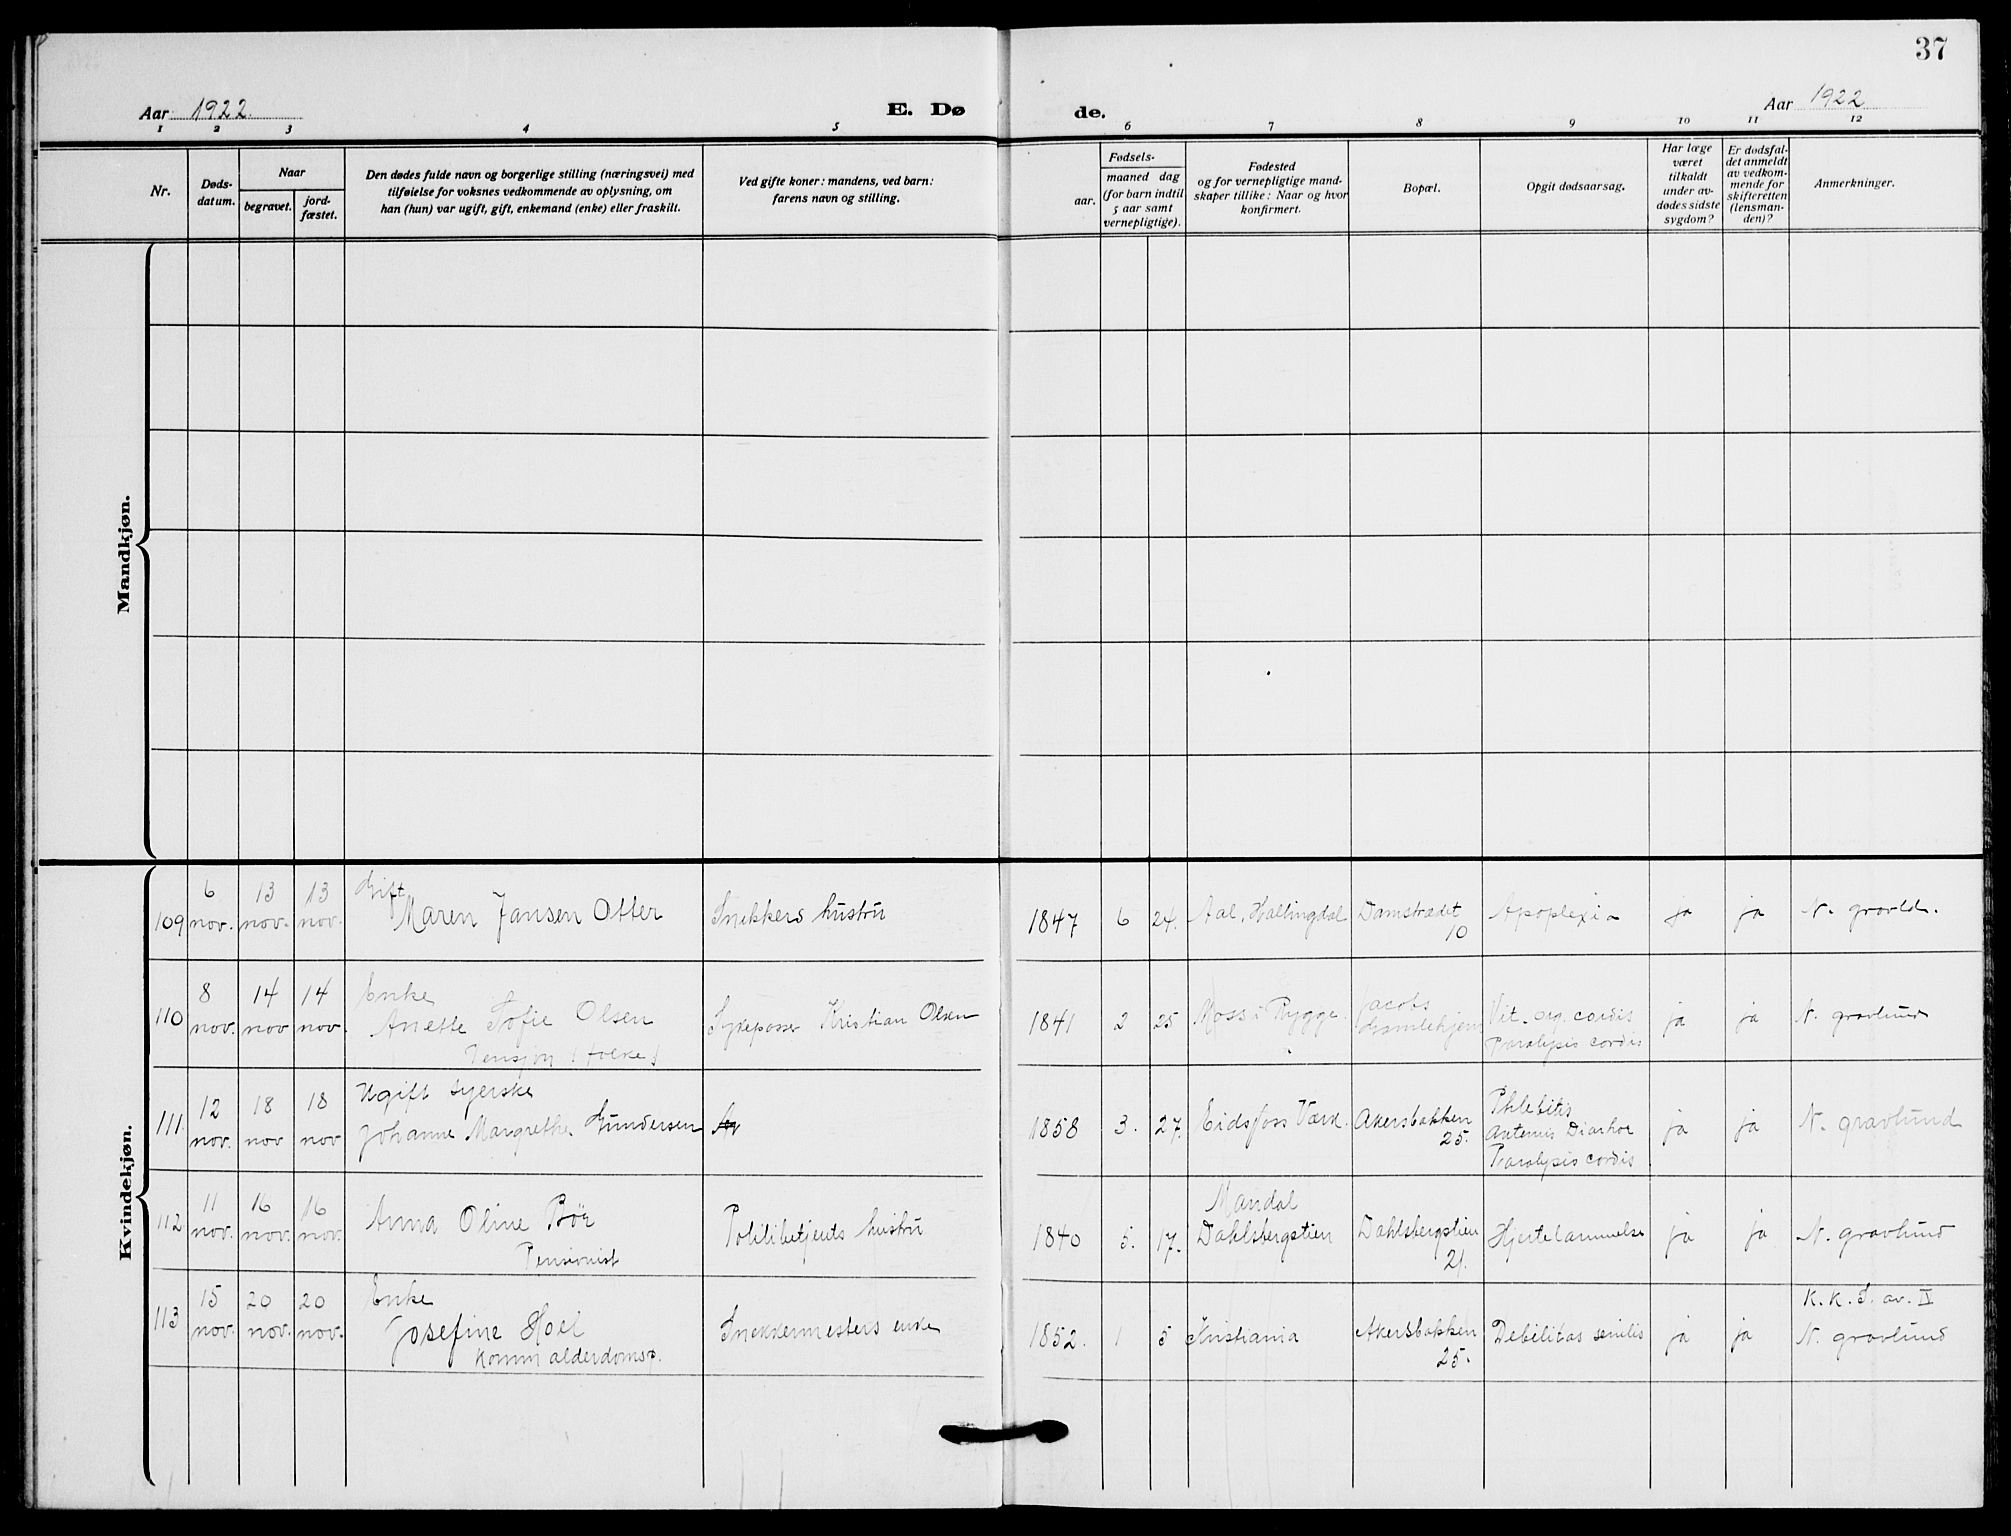 37
Aar 1922
E. Dø
de.
Aar 1922
1 2 3 4 5 6 7 8 9 10 11 12
Nr.
Døds-
datum.
Naar
begravet.
jord-
fæstet.
Den dødes fulde navn og borgerlige stilling (næringsvei) med
tilføielse for voksnes vedkommende av oplysning, om
han (hun) var ugift, gift, enkemand (enke) eller fraskilt.
Ved gifte koner: mandens, ved barn:
farens navn og stilling.
Fødsels-
aar.
maaned dag
(for barn indtil
5 aar samt
vernepligtige).
Fødested
og for vernepligtige mand-
skaper tillike: Naar og hvor
konfirmert.
Bopæl.
Opgit dødsaarsag.
Har læge
været
tilkaldt
under av-
dødes sidste
sygdom?
Er dødsfal-
det anmeldt
av vedkom-
mende for
skifteretten
(lensman-
den)?
Anmerkninger.
Mandkjøn.
Kvindekjøn.
6 13 13 Gift
109 nov. nov. nov. Maren Jansen Otter Snekkers hustru 1847 6 24. Aal, Hallingdal Damstrædet 10 Apoplexia ja ja N. gravld.
8 14 14 Enke
110 nov. nov nov. Anette Sofie Olsen Kristian Olsen 1841 2 25 Moss i Rygge Jacobs Gamlehjem Vit. org. cordis
Paralysis cordis ja ja N. gravlund
12 18 18 Ugift syerske
111 nov. nov nov Johanne Margrethe Gundersen 1858 3. 27. Eidsfoss Værk Akersbakken 25. Phlebitis
Paralysis cordis ja ja N. gravlund
11 16 16
112 nov. nov. nov. Anna Oline Bør
Pensionist
Politibetjents hustru 1840 5. 17. Mandal
Dahlsbergstien Dahlsbergstien 21. Hjertelammelse ja ja N. gravlund
15 20 20 Enke
113 nov. nov. nov. Josefine Hoel
Komm alderdomsp.
Snekkermesters enke 1852. 1 5 Kristiania Akersbakken 25. Debilitas senilis ja ja K. K. S. av. IV
N. gravlund